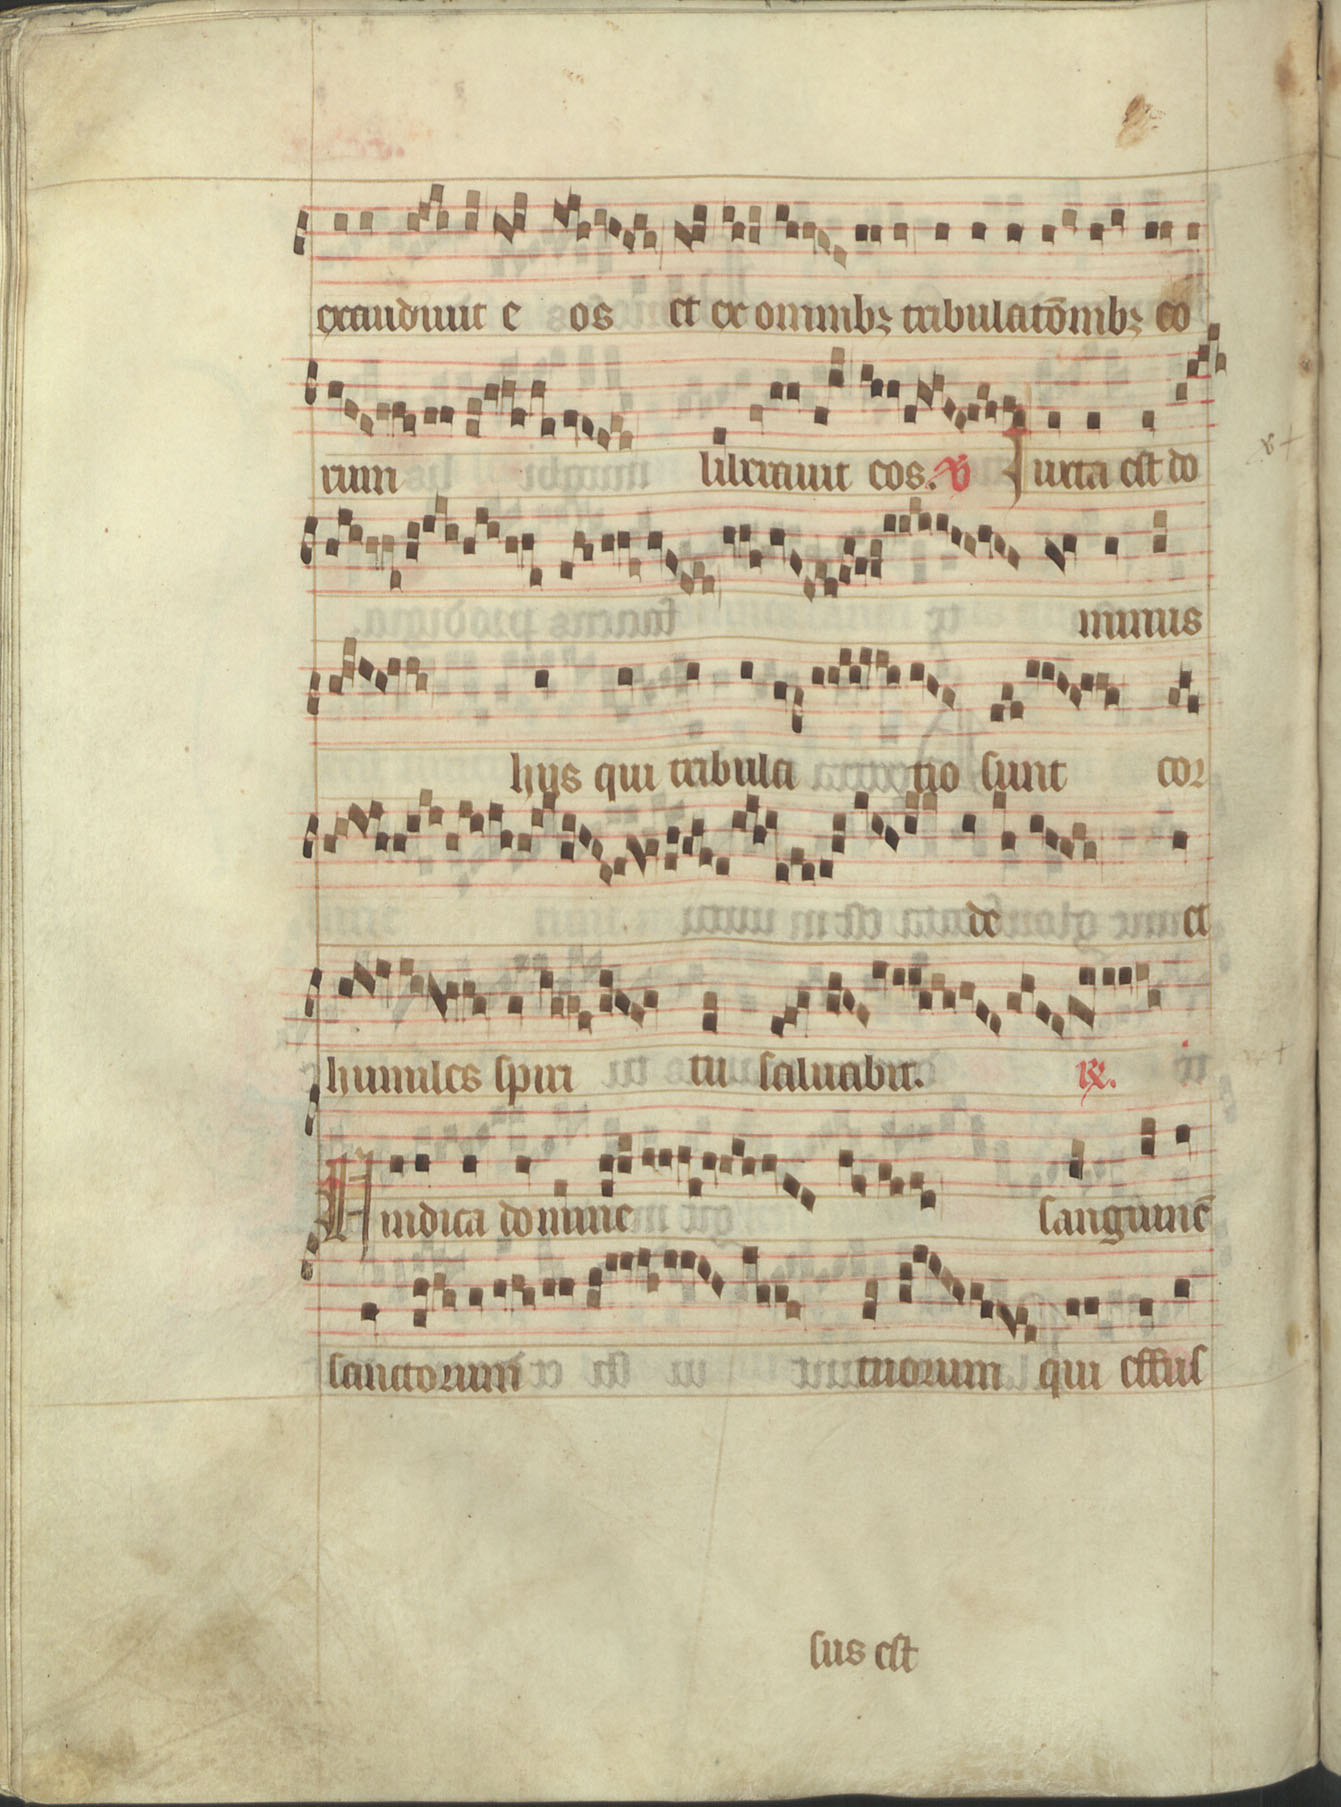 exaudiuit e os et ex omnibꝫ tribulatõnibꝫ eo
rum liberauit eos. ℣ Iuxta est do
minus
hijs qui tribula tio sunt cor
de et
humiles spiri tu saluabit. ℟.
Uindica domine sanguinē
sanctorum tuorum qui effus
sus est